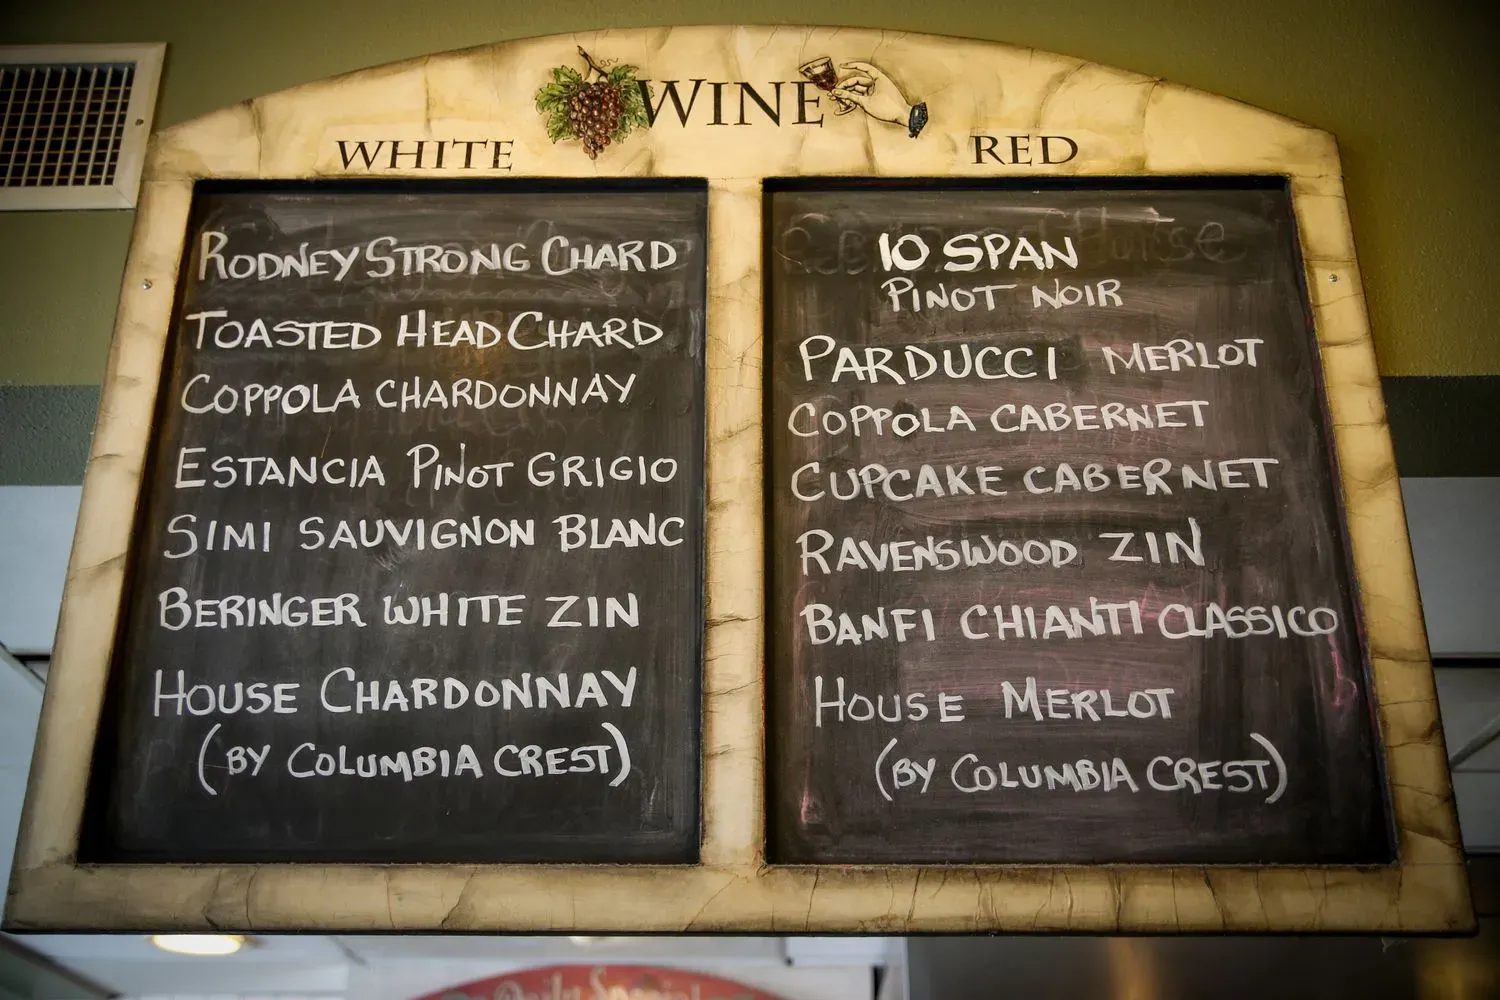 WINE
WHITE
RODNEY STRONG CHARD
TOASTED HEAD CHARD
COPPOLA CHARDONNAY
ESTANCIA PINOT GRIGIO
SIMI SAUVIGNON BLANC
BERINGER WHITE ZIN
HOUSE CHARDONNAY
(BY COLUMBIA CREST)
RED
10 SPAN
PINOT NOIR
PARDUCCI MERLOT
COPPOLA CABERNET
CUPCAKE CABERNET
RAVENSWOOD ZIN
BANFI CHIANTI CLASSICO
HOUSE MERLOT
(BY COLUMBIA CREST)
Daily